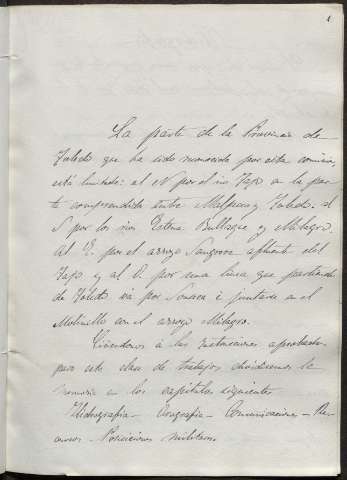 1
La parte de la Provincia de
Toledo que ha sido reconocida por esta comisión
está limitada: al N por el rio Tajo en la par-
te comprendida entre Malpica y Toledo, al
S por los rios Estena Bullaque y Milagro.
Al E. por el arroyo Sangrera afluente del
Tajo y al O. por una linea que partiendo
de Toledo vá por Sonseca á juntarse en el
Molinillo con el arroyo Milagro.
Ciñendonos á las instrucciones aprobadas
para esta clase de trabajos dividiremos la
memoria en los capitulos siguientes
Hidrografia - Orografia - Comunicaciones - Re-
cursos - Posiciones militares.